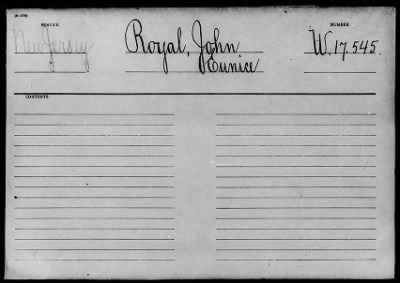 SERVICE
NUMBER
New Jersey
Royal, John
W. 17.545.
Eunice
CONTENTS